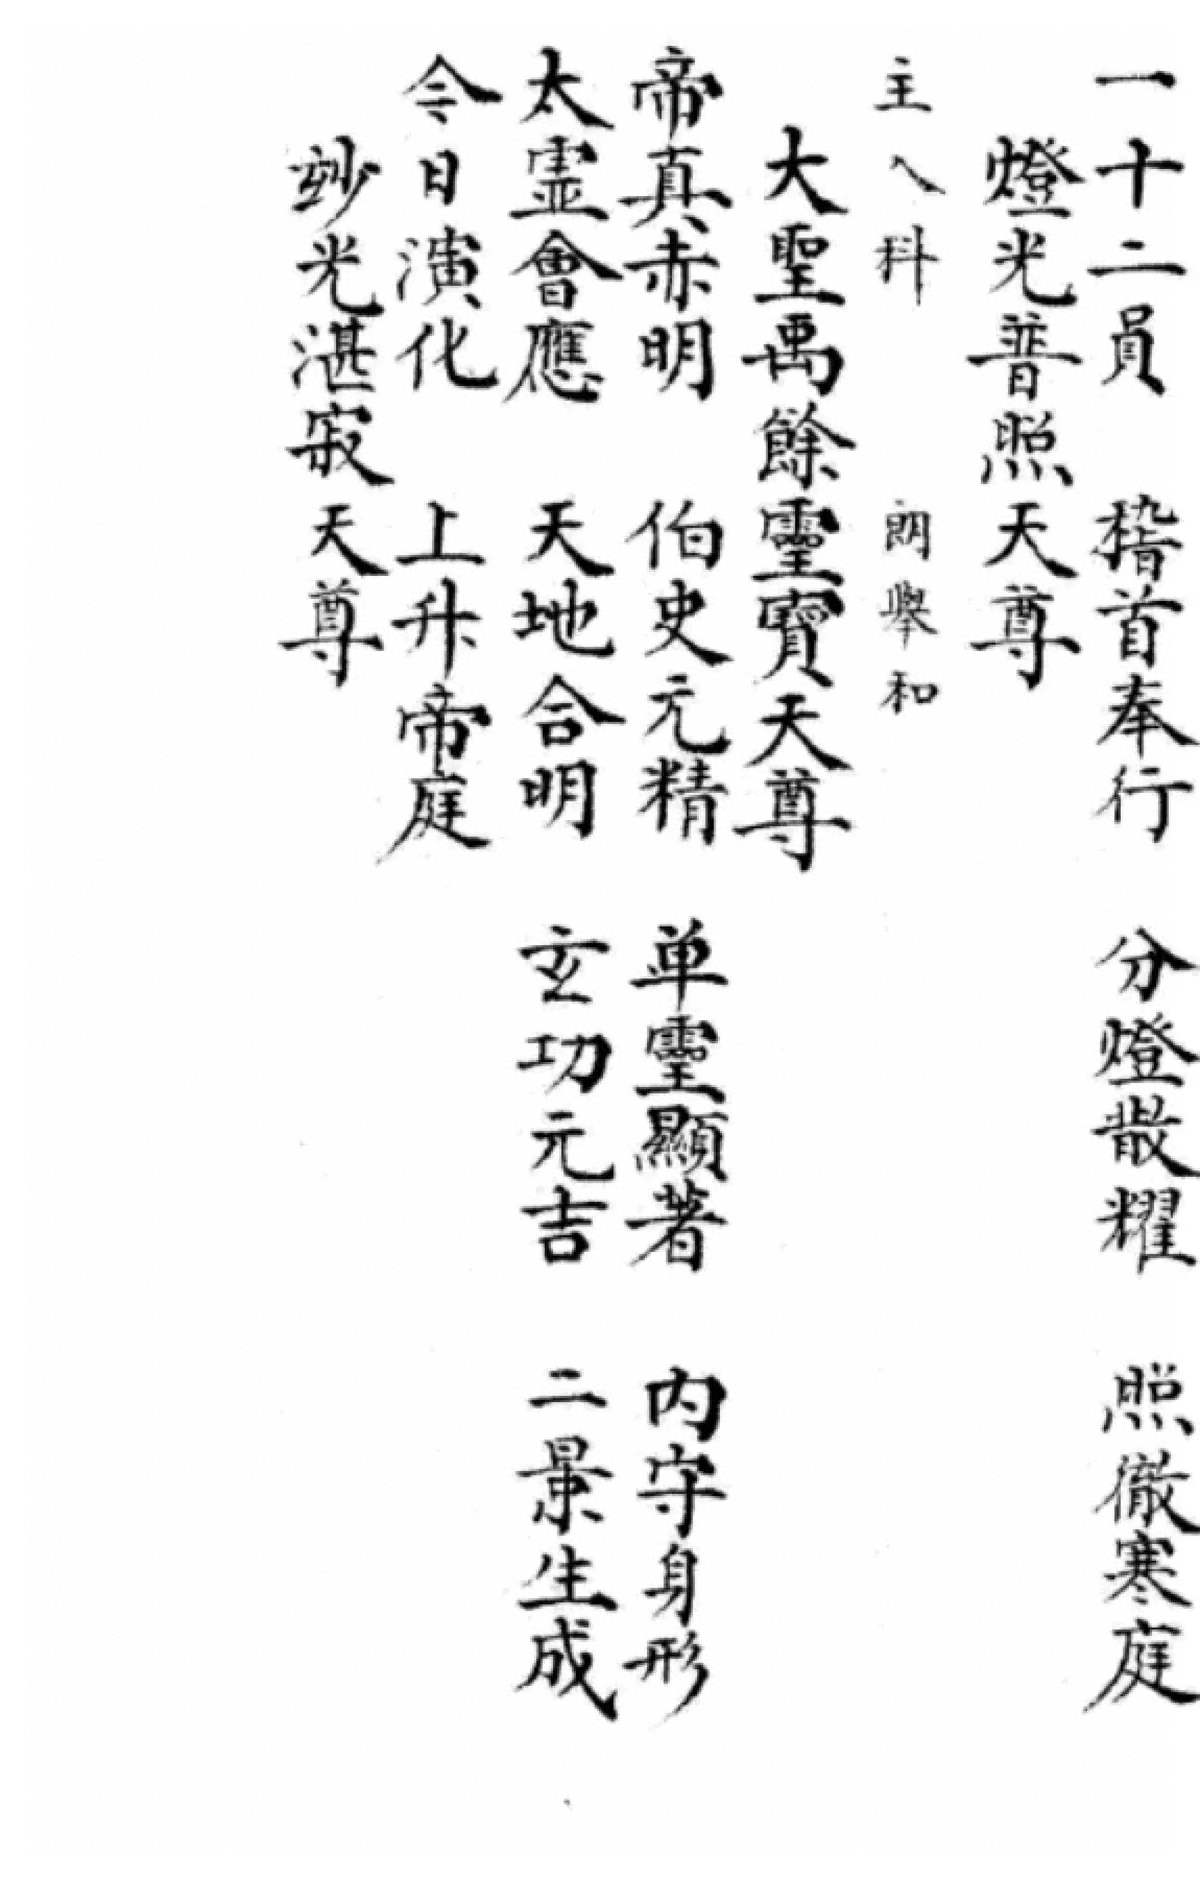 一十二員　稽首奉行　分燈散耀　照徹寒庭
燈光普照天尊
主入科　朗舉和
大聖禹餘靈寶天尊
帝真赤明　伯史元精　单靈顯著　內守身形
太霊會應　天地合明　玄功元吉　二景生成
今日演化　上升帝庭
玅光湛寂天尊